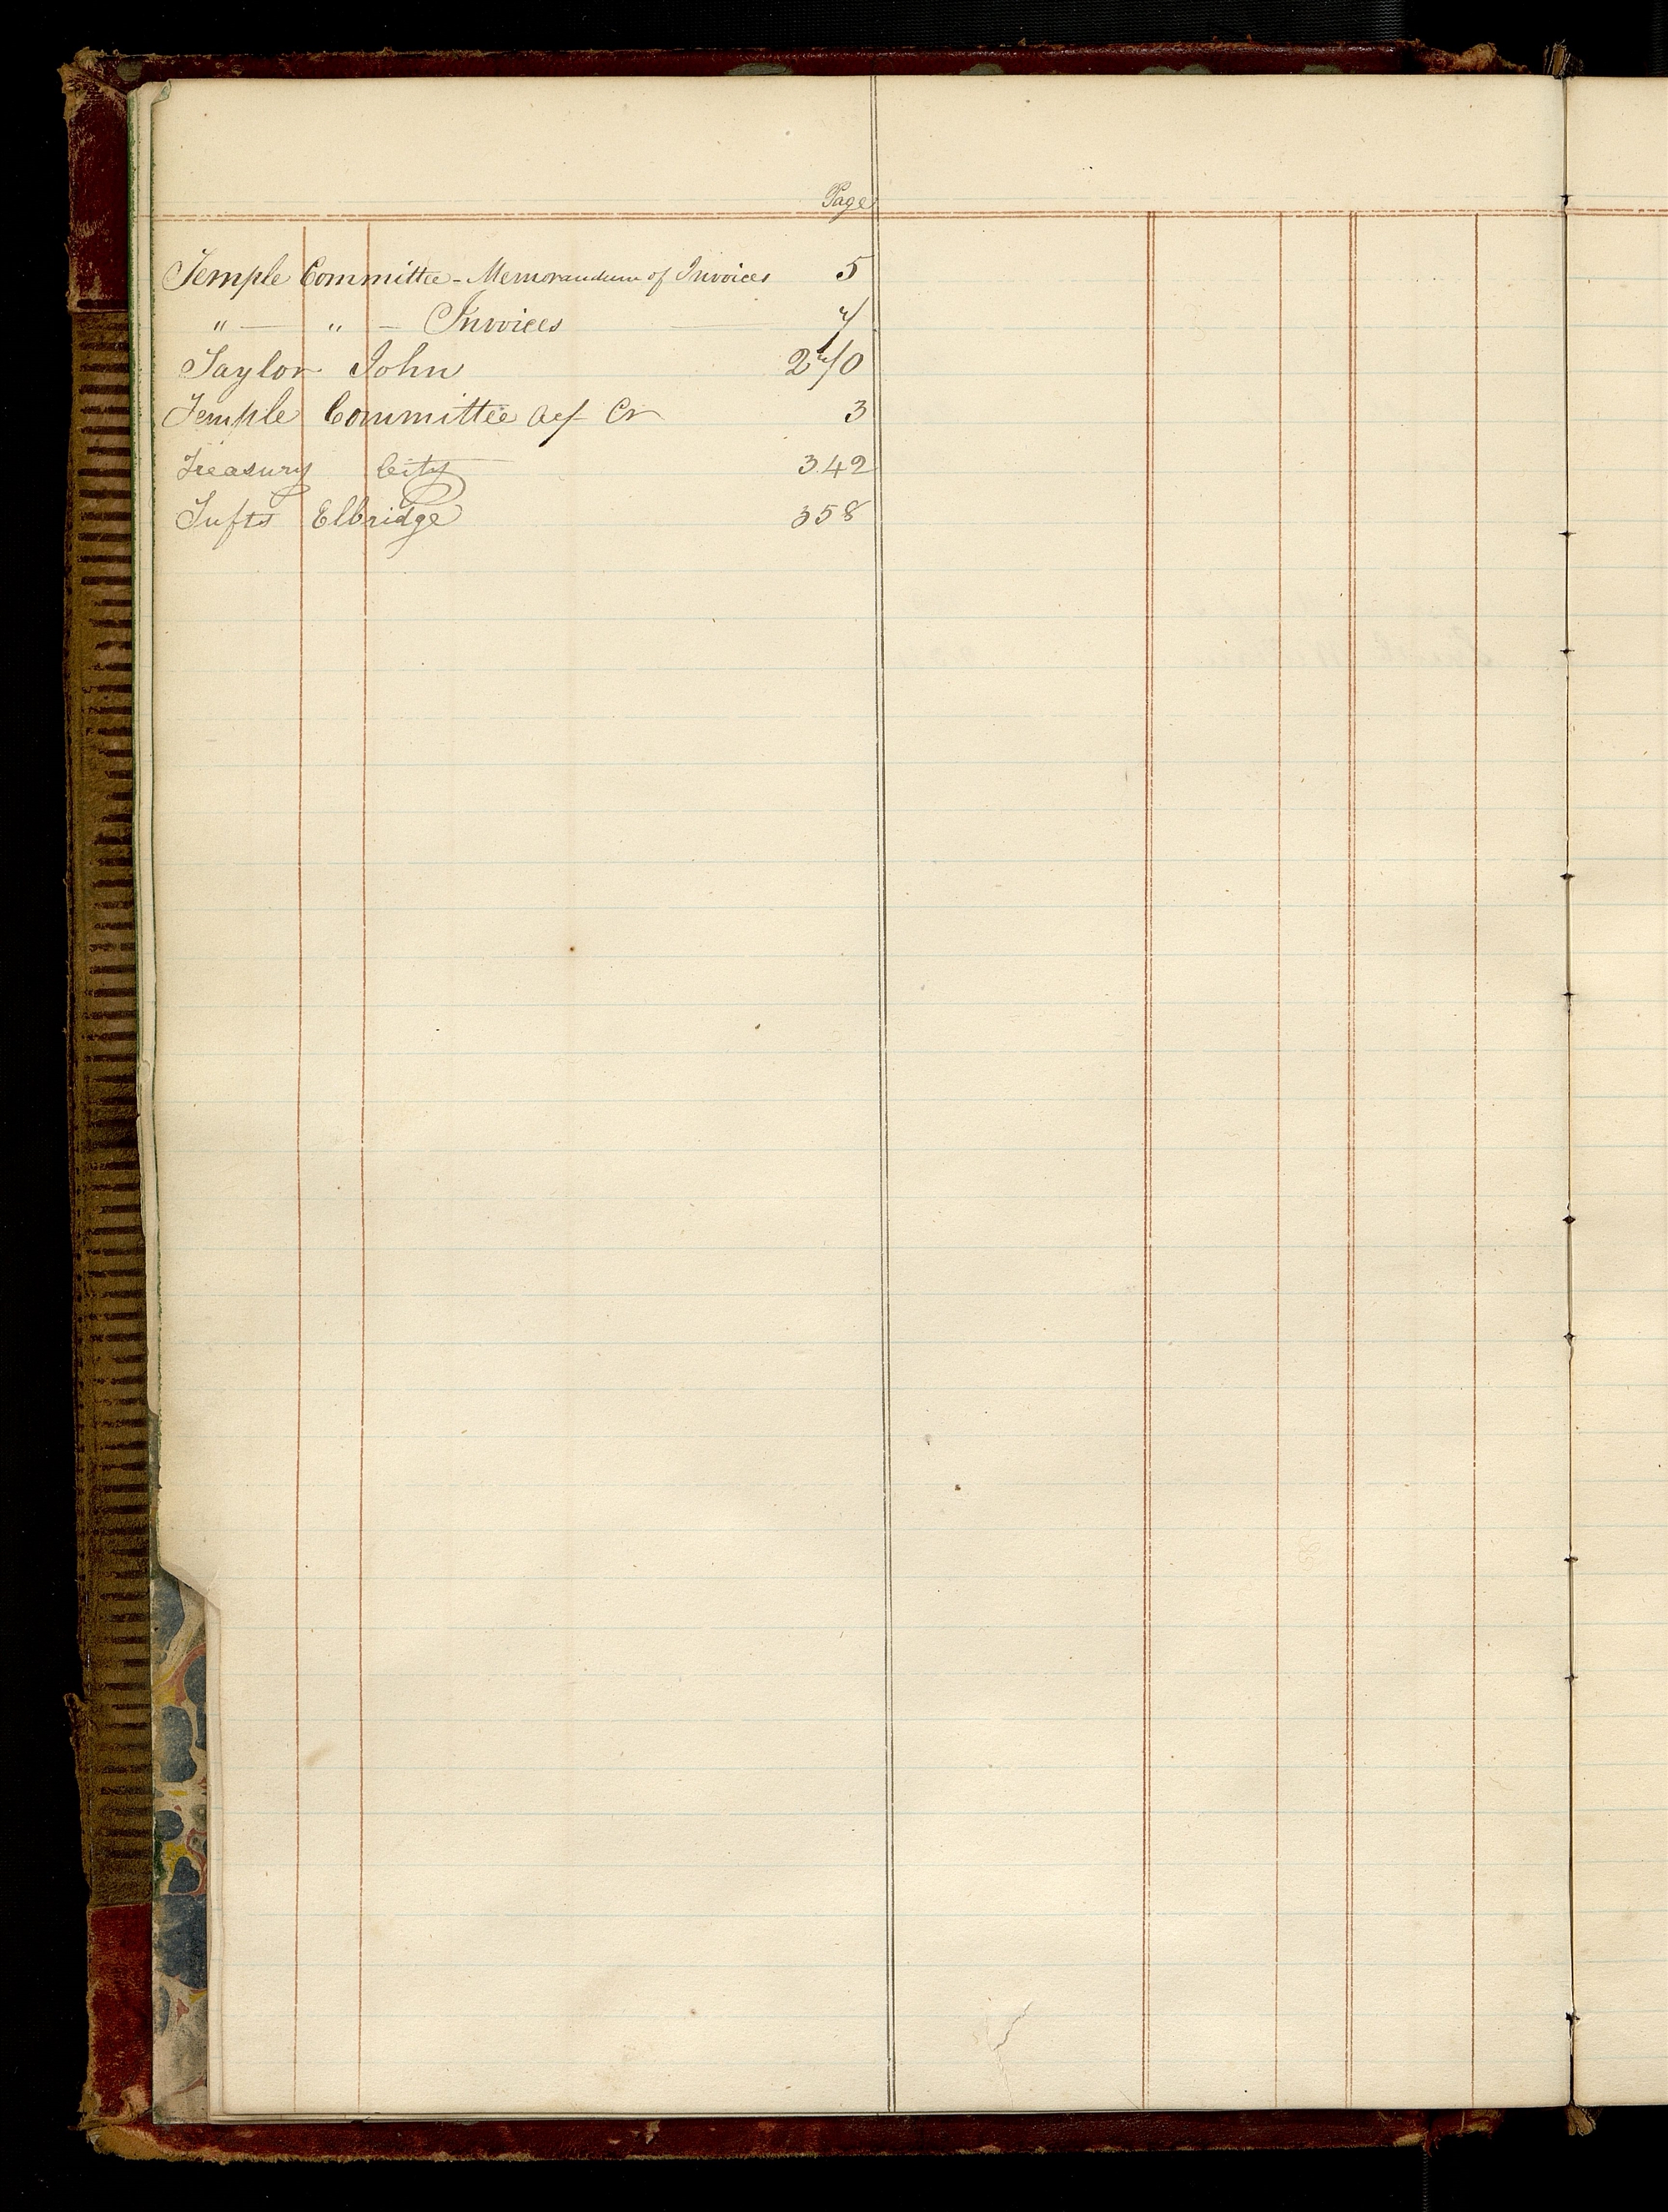 Page
Temple Committee - Memorandum of Invoices 5
" — " — Invoices 7
Taylor John 270
Temple Committee a/c Cr 3
Treasury City 342
Tufts Elbridge 358